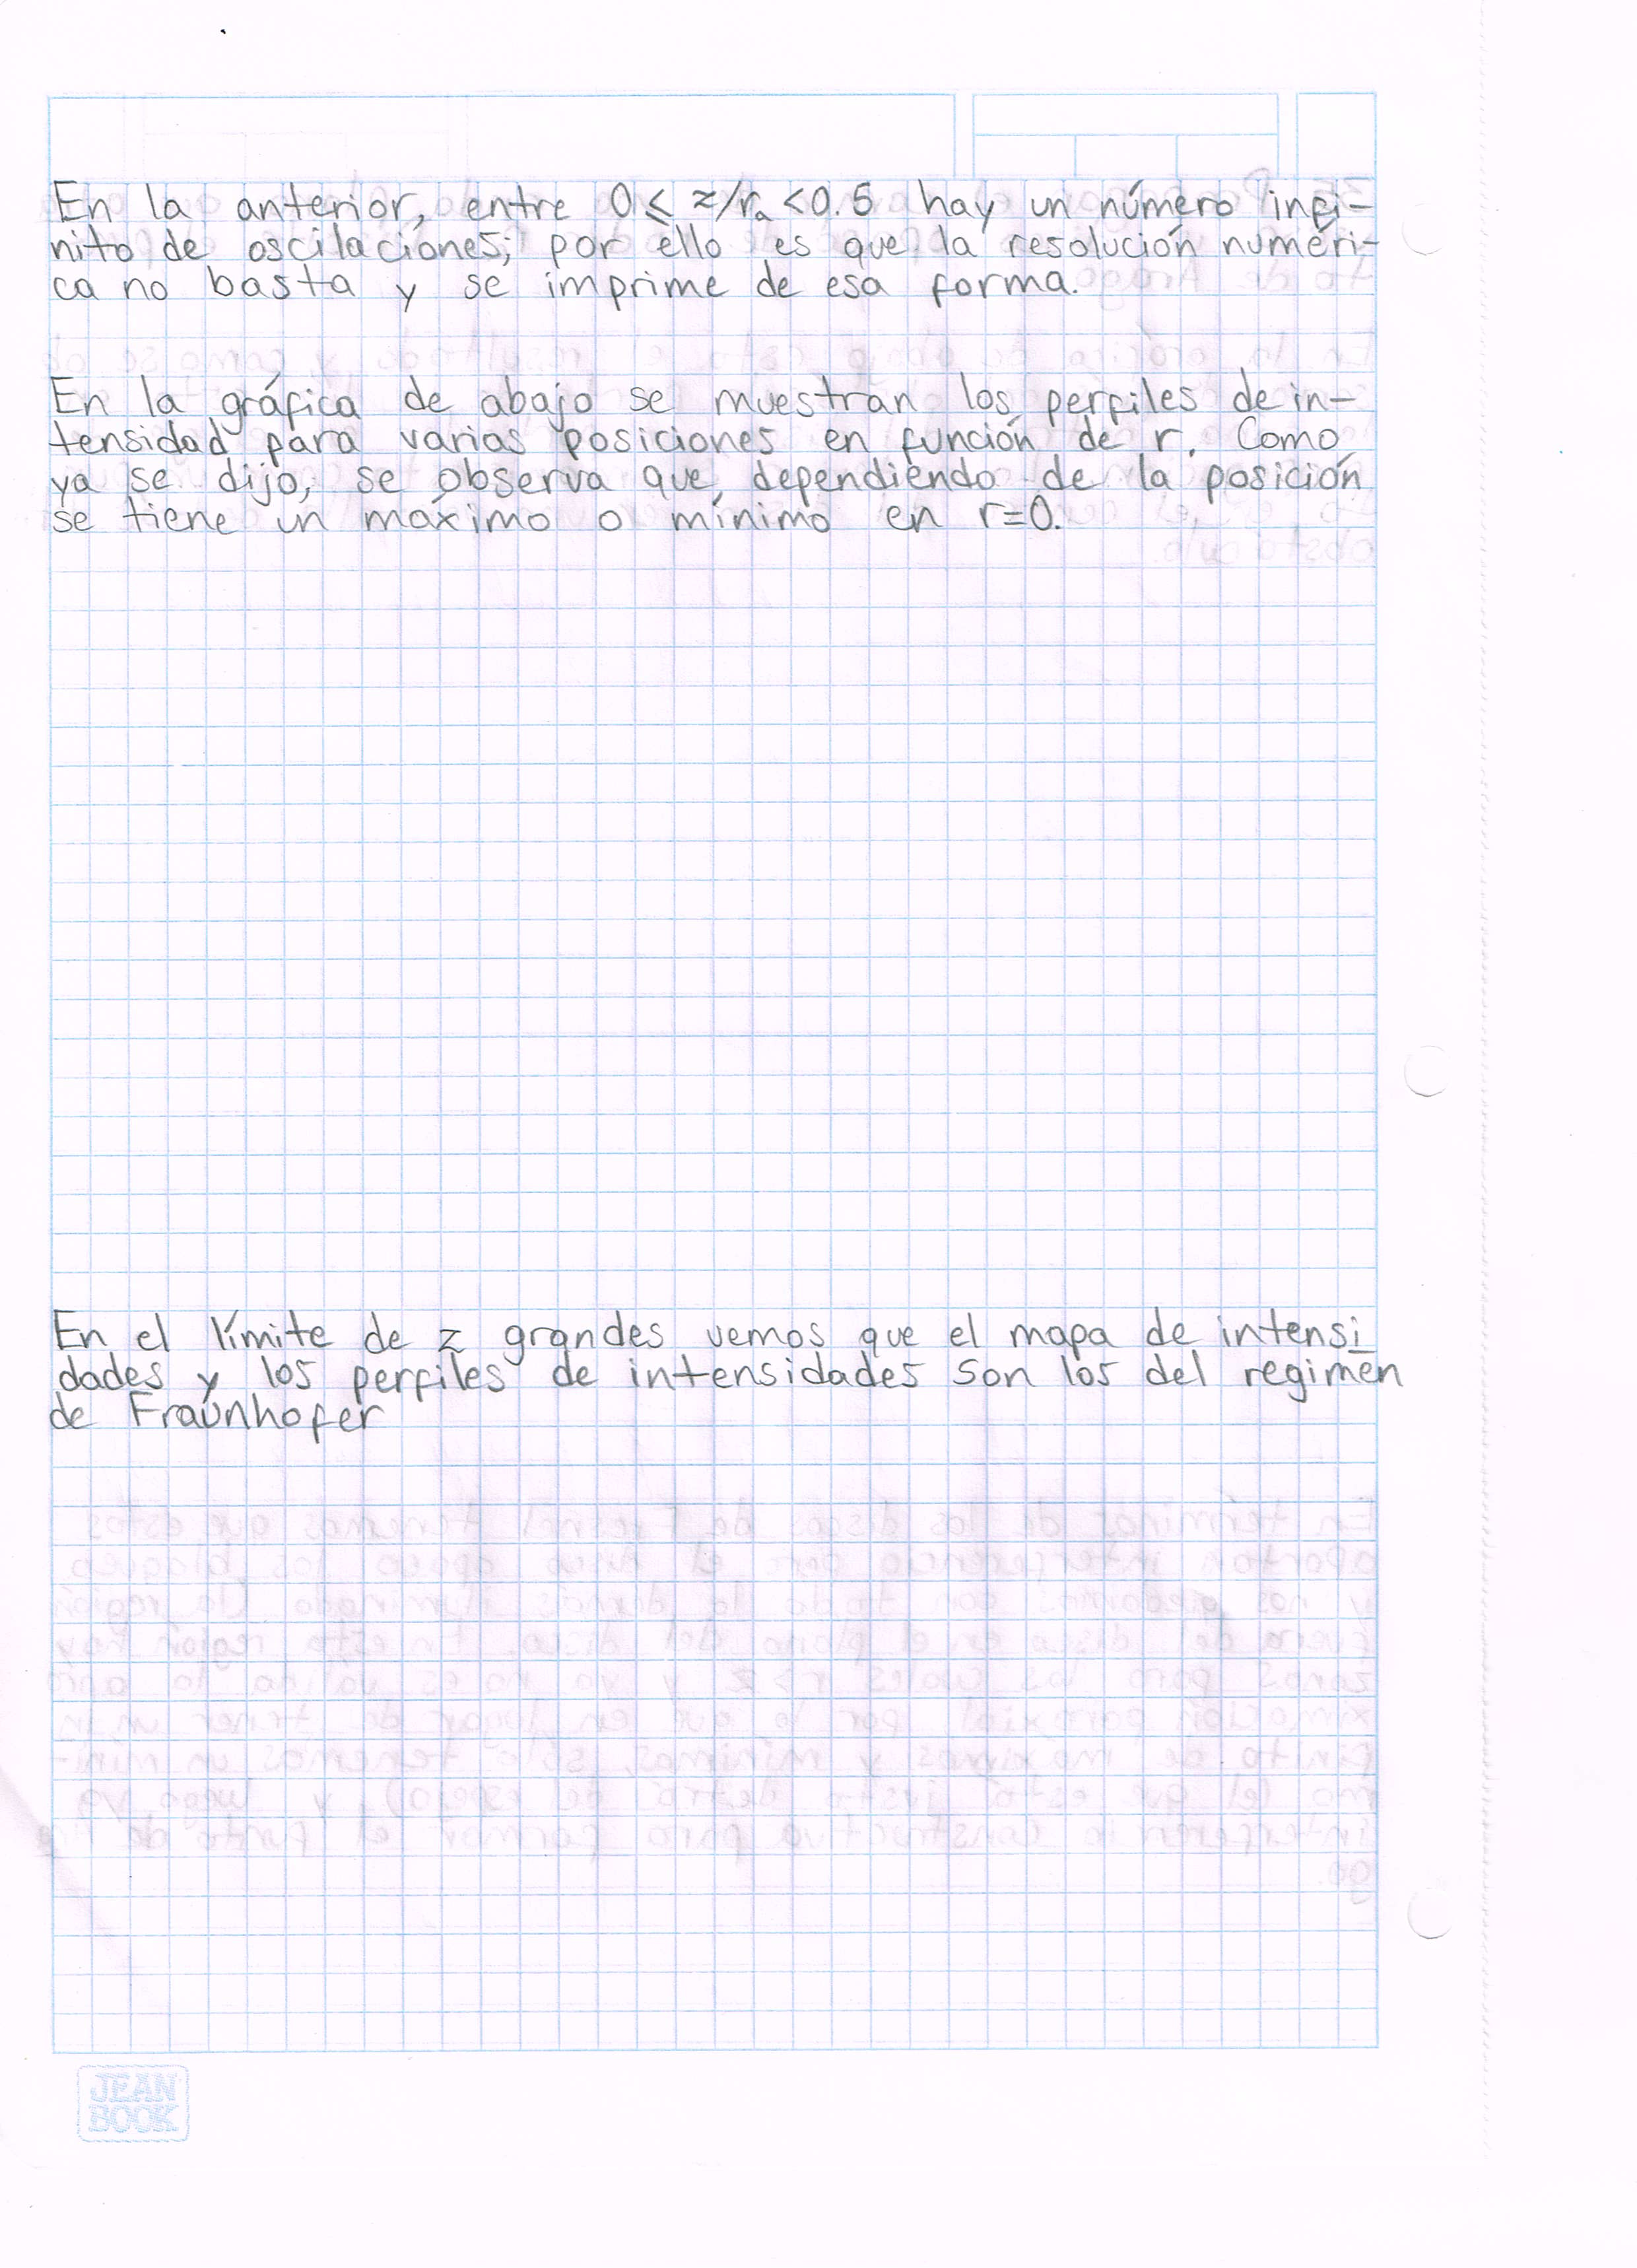 En la anterior, entre 0 ≤ z/rₐ < 0.5 hay un número infi-
nito de oscilaciones; por ello es que la resolución numéri-
ca no basta y se imprime de esa forma.
En la gráfica de abajo se muestran los perfiles de in-
tensidad para varias posiciones en función de r. Como
ya se dijo, se observa que, dependiendo de la posición
se tiene un máximo o mínimo en r=0.
En el límite de z grandes vemos que el mapa de intensi
dades y los perfiles de intensidades son los del regimen
de Fraunhofer
JEAN
BOOK